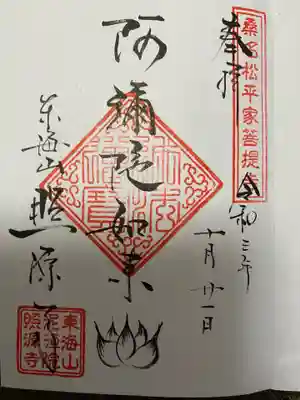 桑名松平家菩提寺
奉拝
令和三年
十月廿一日
阿彌陀如来
東海山照源寺
東海山
泥洹院
照源寺